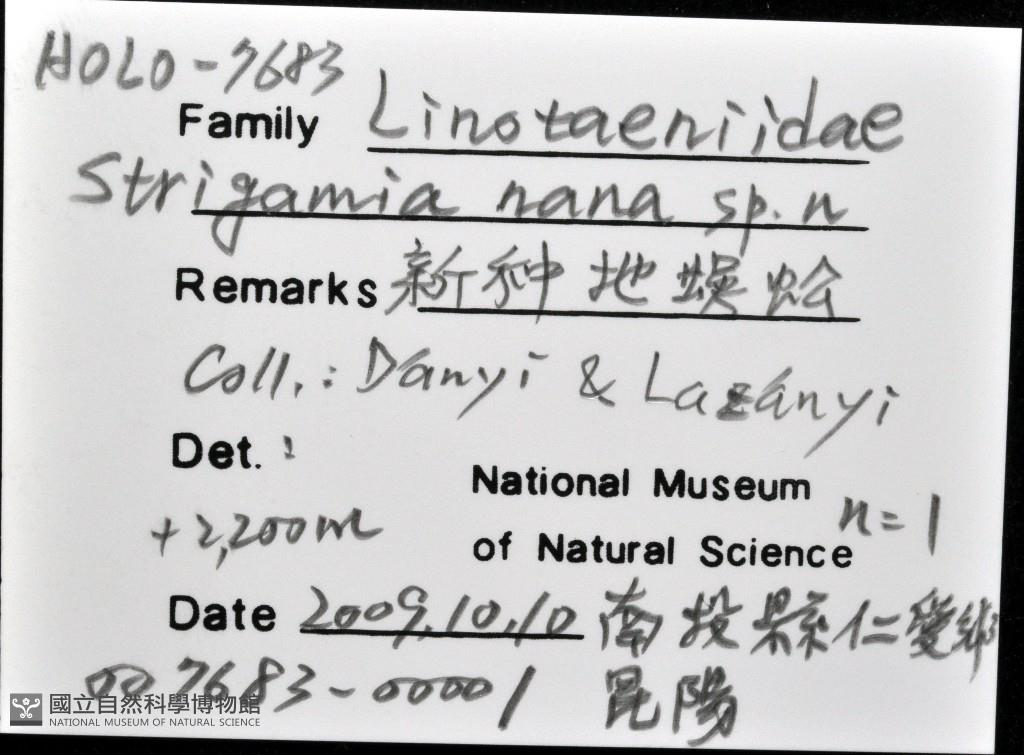 HOLO-7683
Family Linotaeniidae
Strigamia nana sp.n
Remarks 新种地蜈蚣
Coll.: Dányi & Lazányi
Det. :
National Museum
+2,200m
of Natural Science n=1
Date 2009.10.10 南投縣仁愛鄉
007683-00001 昆陽
國立自然科學博物館
NATIONAL MUSEUM OF NATURAL SCIENCE